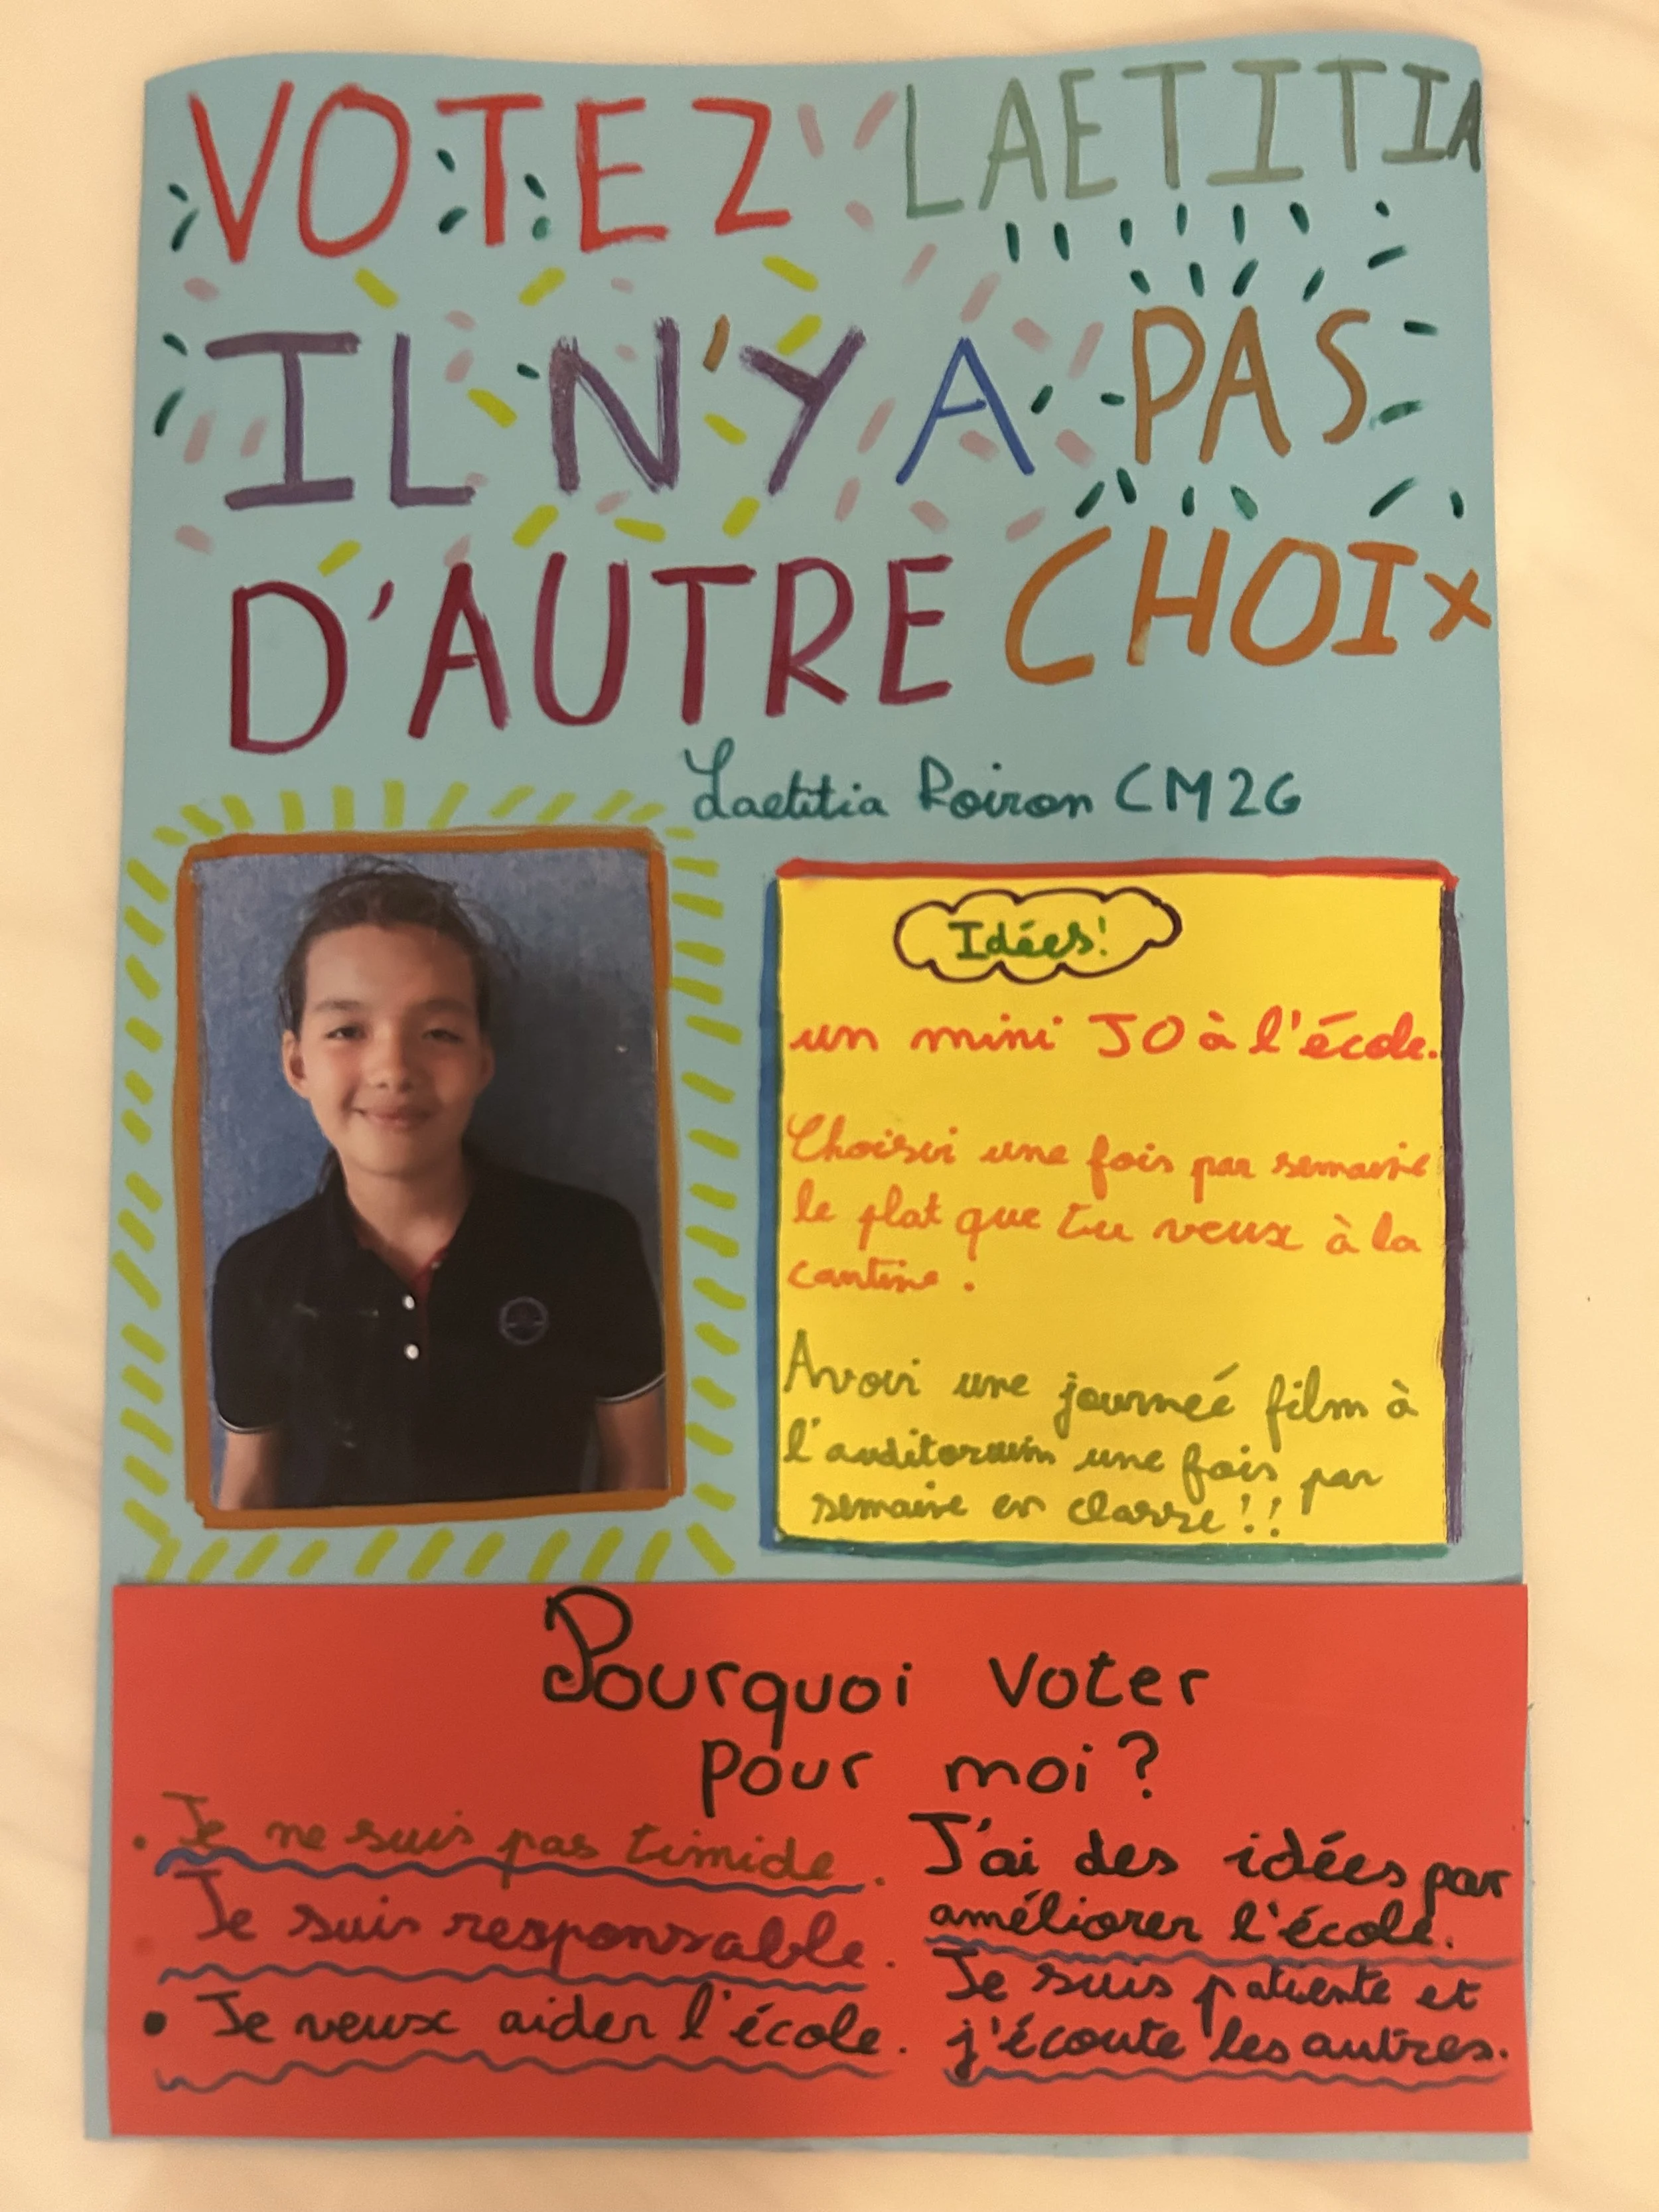 VOTEZ LAETITIA
IL N'Y A PAS
D'AUTRE CHOIX
Laetitia Poiron CM2G
Idées!
un mini JO à l'école.
Choisir une fois par semaine
le plat que tu veux à la
cantine.
Avoir une journeé film à
l'auditoruim une fois par
semaine en classe!!
Pourquoi voter
pour moi?
• Je ne suis pas timide.
• Je suis responsable.
• Je veux aider l'école.
J'ai des idées par
améliorer l'école.
Je suis patiente et
j'écoute les autres.